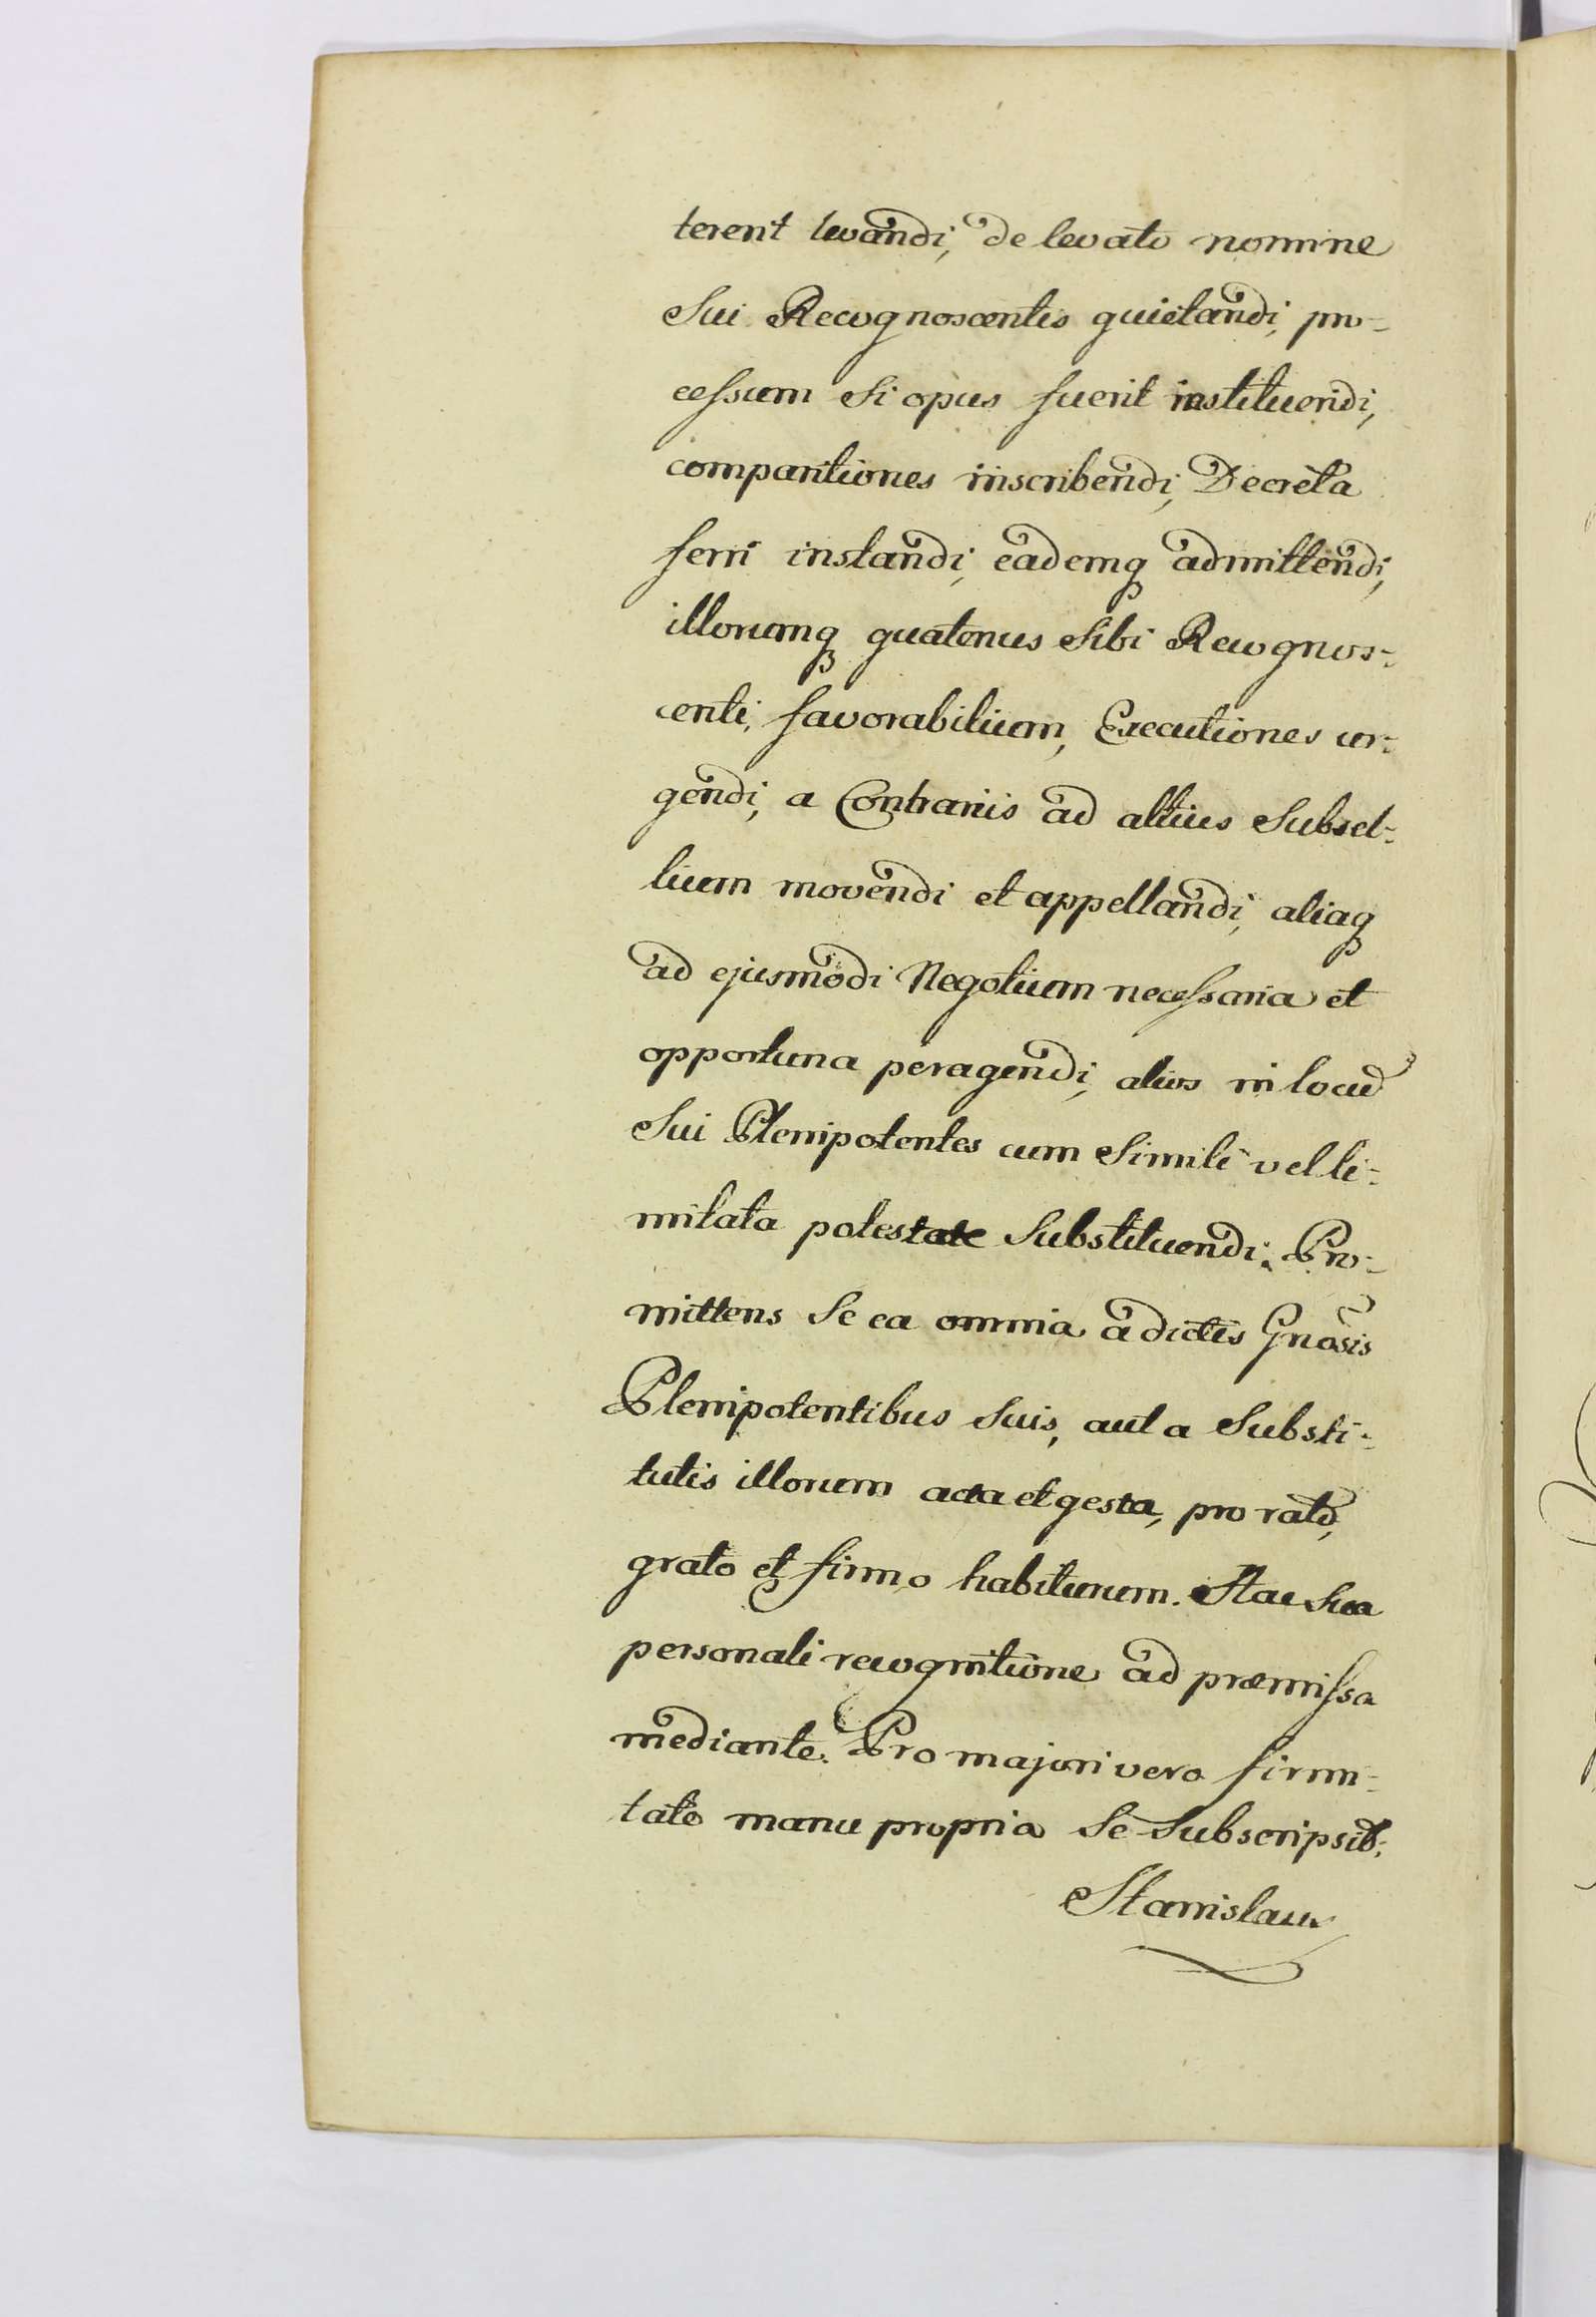 terent levandi, de levato nomine
Sui Recognoscentis quietandi, pro-
cessum Si opus fuerit instituendi,
comparitiones inscribendi, Decreta
ferri instandi, eademq admittendi,
illorumq quatenus Sibi Recognos-
centi, favorabilium, Executiones ur-
gendi, a Contrariis ad altius Subsel-
lium movendi et appellandi, aliaq
ad ejusmodi Negotium necessaria et
opportuna peragendi, alios in locu
Sui Plenipotentes cum Simili vel li-
mitata potestate Substituendi. Pro-
mittens Se ea omnia a dictis Gnosis
Plenipotentibus Suis, aut a Substi-
tutis illorum acta et gesta, pro rato,
grato et firmo habiturum. Hac Sua
personali recognitione ad præmissa
mediante. Pro majori vero firmi-
tate manu propria Se Subscripsit.
Stanislaus